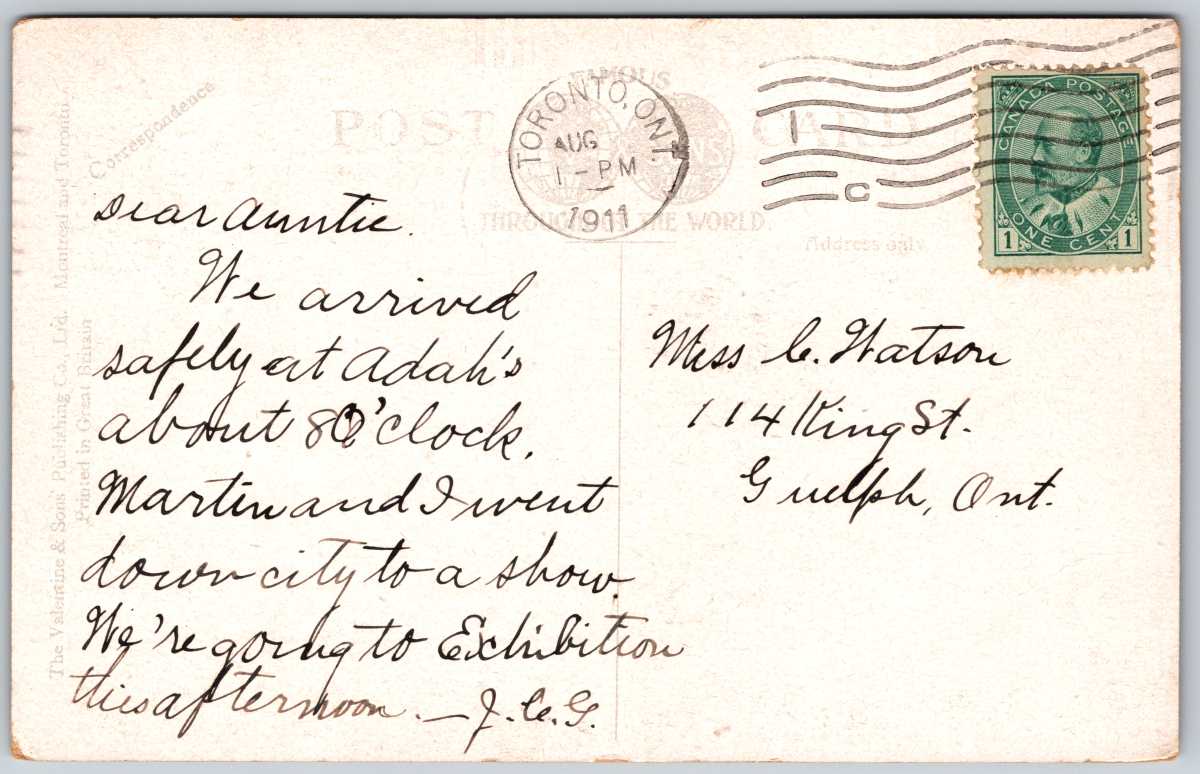 Correspondence
POST CARD
FAMOUS
THROUGHOUT THE WORLD.
Address only.
TORONTO, ONT.
AUG
1 - PM
1911
1
C
CANADA POSTAGE
1 ONE CENT 1
The Valentine & Sons' Publishing Co., Ltd. Montreal and Toronto.
Printed in Great Britain
Dear Auntie.
We arrived
safely at Adah's
about 8 O'clock.
Martin and I went
down city to a show.
We're going to Exhibition
this afternoon. — J. C. G.
Miss C. Watson
114 King St.
Guelph, Ont.